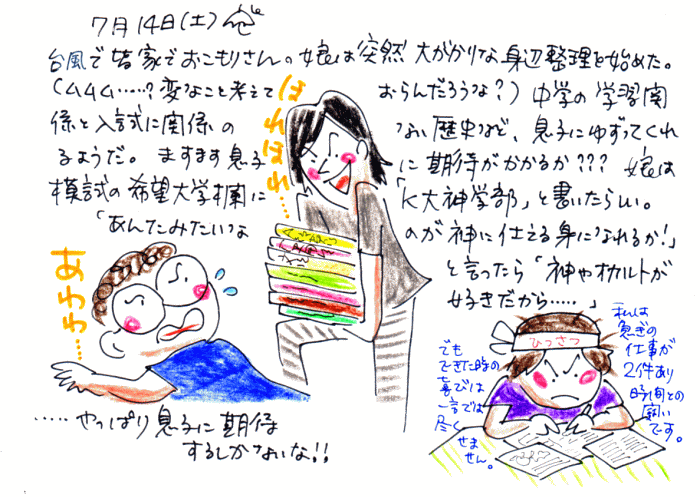 7月14日(土)
台風で皆家でおこもりさんの娘は突然大がかりな身辺整理を始めた。
(ムムム……?変なこと考えておらんだろうな?)中学の学習関
係と入試に関係のない歴史など、息子にゆずってくれ
るようだ。ますます息子に期待がかかるか???娘は
模試の希望大学欄に「K大神学部」と書いたらしい。
「あんたみたいなのが神に仕える身になれるか!」
と言ったら「神やオカルトが
好きだから……」
ほれほれ…
あわわ…
……やっぱり息子に期待
するしかないな!!
ひっさつ
私は
急ぎの
仕事が
2件あり
時間との
闘い
です。
でも
できた時の
喜びは
一言では
尽く
せま
せん。